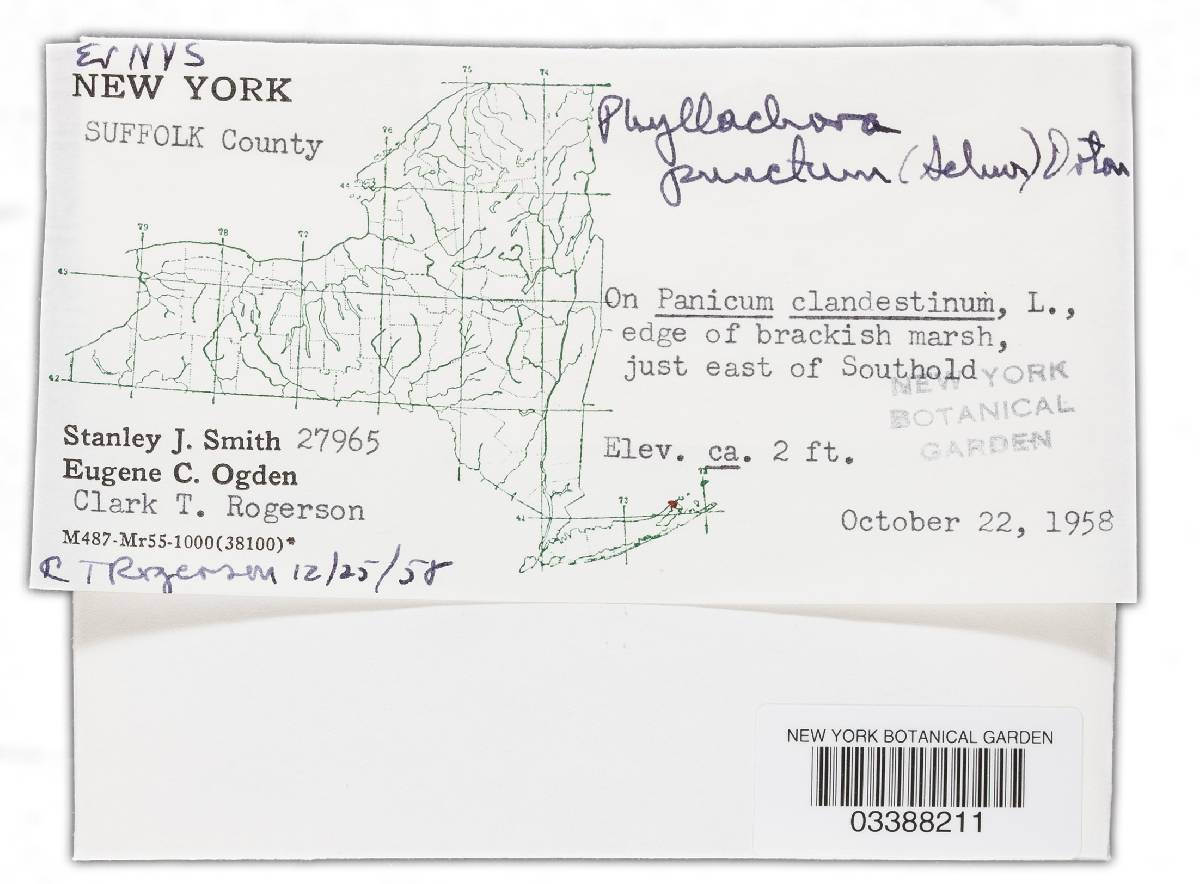 Ex NYS
NEW YORK
SUFFOLK County
Phyllachora
punctum (Schw.) Orton
75 74
76
44
79 78 77
43
42
On Panicum clandestinum, L.,
edge of brackish marsh,
just east of Southold
NEW YORK
BOTANICAL
GARDEN
Stanley J. Smith 27965
Eugene C. Ogden
Clark T. Rogerson
Elev. ca. 2 ft.
73
41
October 22, 1958
M487-Mr55-1000(38100)*
C T Rogerson 12/25/58
NEW YORK BOTANICAL GARDEN
03388211